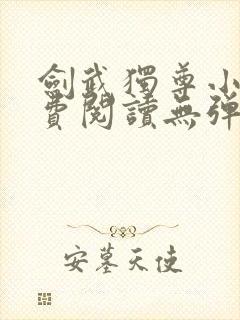 劍武獨尊小
費閱讀無彈
安墓天使